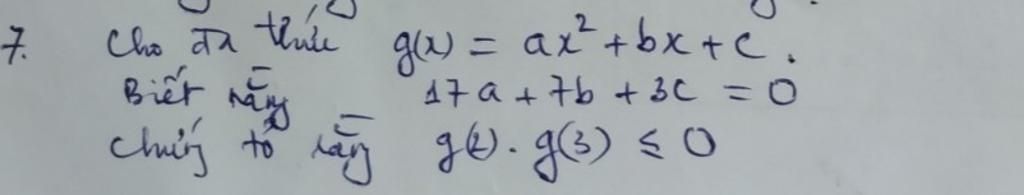 7. Cho đa thức g(x) = ax² + bx + c.
Biết rằng 17a + 7b + 3c = 0
Chứng tỏ rằng g(2). g(3) ≤ 0